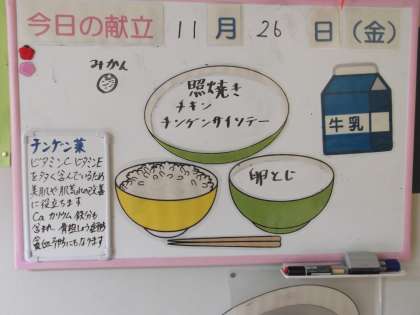 今日の献立 11月26日(金)
みかん
照焼き
チキン
チンゲンサイソテー
牛乳
卵とじ
チンゲン菜
ビタミンC ビタミンE
を多く含んでいるため
美肌や肌荒れの改善
に役立ちます
Ca カリウム 鉄分も
含まれ 骨粗しょう症予防
貧血予防にもなります